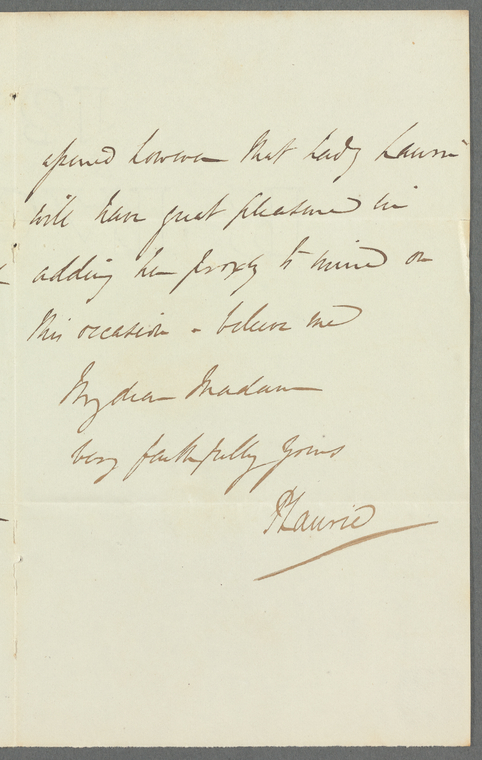 assured however that Lady Laurie
will have great pleasure in
adding her proxy to mine on
this occasion - believe me
My dear Madam
very faithfully yours
PLaurie